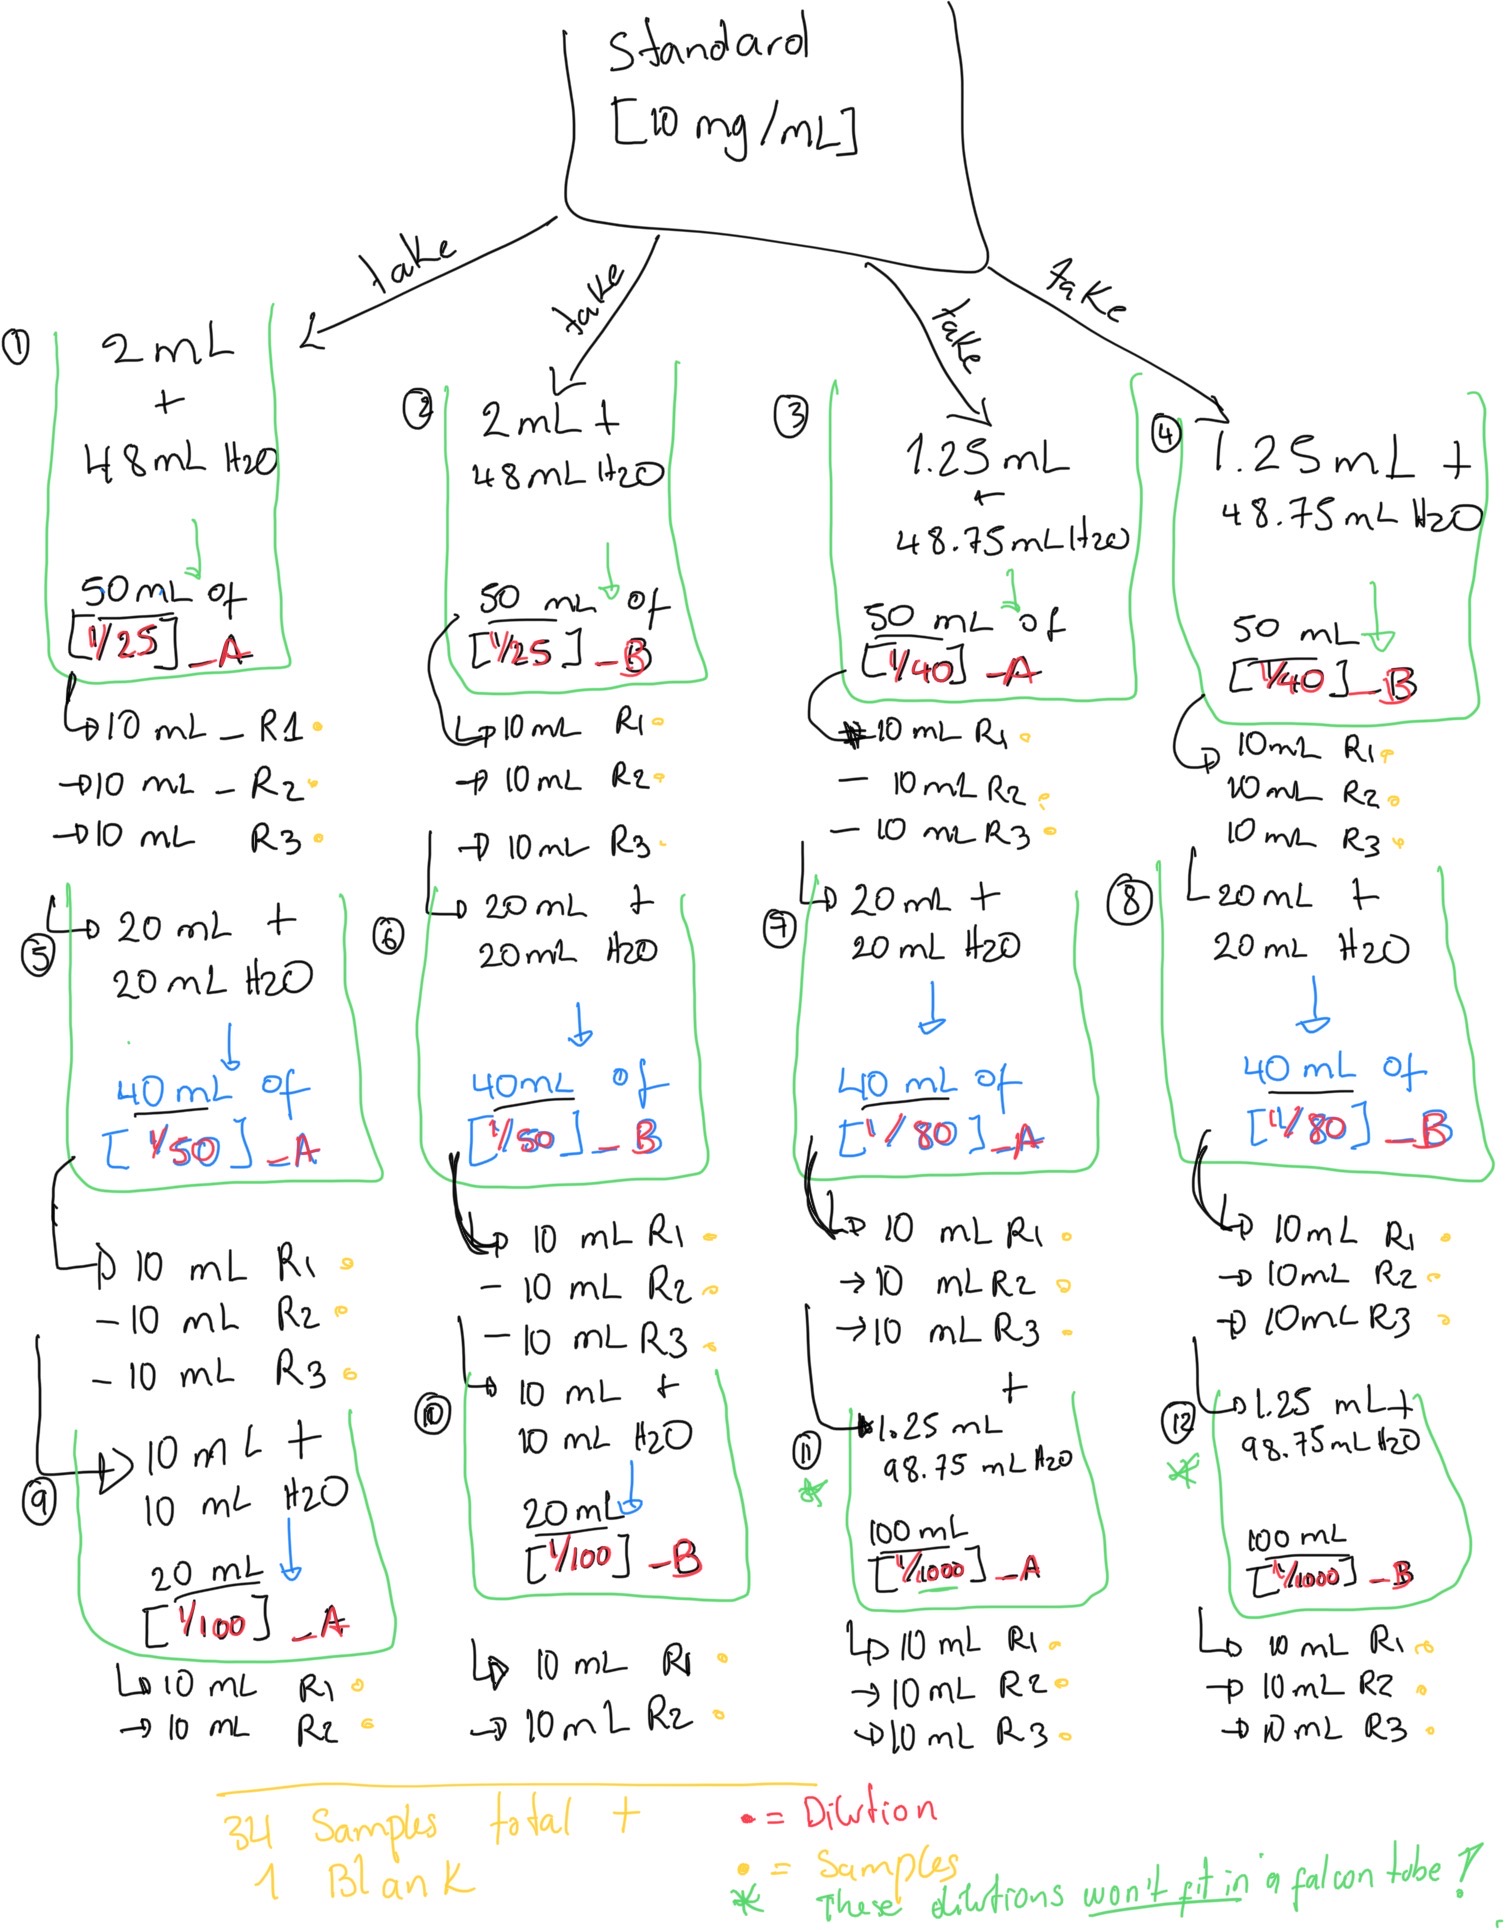 Standard
[10 mg/mL]
take
take
take
take
①
2 mL
+
48 mL H2O
50 mL of
[1/25]_A
10 mL – R1
10 mL – R2
10 mL R3
②
2 mL +
48 mL H2O
50 mL of
[1/25]_B
10 mL R1
10 mL R2
10 mL R3
③
1.25 mL
+
48.75 mL H2O
50 mL of
[1/40]_A
10 mL R1
– 10 mL R2
– 10 mL R3
④
1.25 mL +
48.75 mL H2O
50 mL
[1/40]_B
10 mL R1
10 mL R2
10 mL R3
⑤
20 mL +
20 mL H2O
40 mL of
[1/50]_A
10 mL R1
– 10 mL R2
– 10 mL R3
⑥
20 mL +
20 mL H2O
40 mL of
[1/50]_B
10 mL R1
– 10 mL R2
– 10 mL R3
⑦
20 mL +
20 mL H2O
40 mL of
[1/80]_A
10 mL R1
10 mL R2
10 mL R3
⑧
20 mL +
20 mL H2O
40 mL of
[1/80]_B
10 mL R1
10 mL R2
10 mL R3
⑨
10 mL +
10 mL H2O
20 mL
[1/100]_A
10 mL R1
10 mL R2
⑩
10 mL +
10 mL H2O
20 mL
[1/100]_B
10 mL R1
10 mL R2
⑪
*
+
1.25 mL
98.75 mL H2O
100 mL
[1/1000]_A
10 mL R1
10 mL R2
10 mL R3
⑫
*
1.25 mL +
98.75 mL H2O
100 mL
[1/1000]_B
10 mL R1
10 mL R2
10 mL R3
34 Samples total +
1 Blank
• = Dilution
• = Samples
* These dilutions won't fit in a falcon tube!